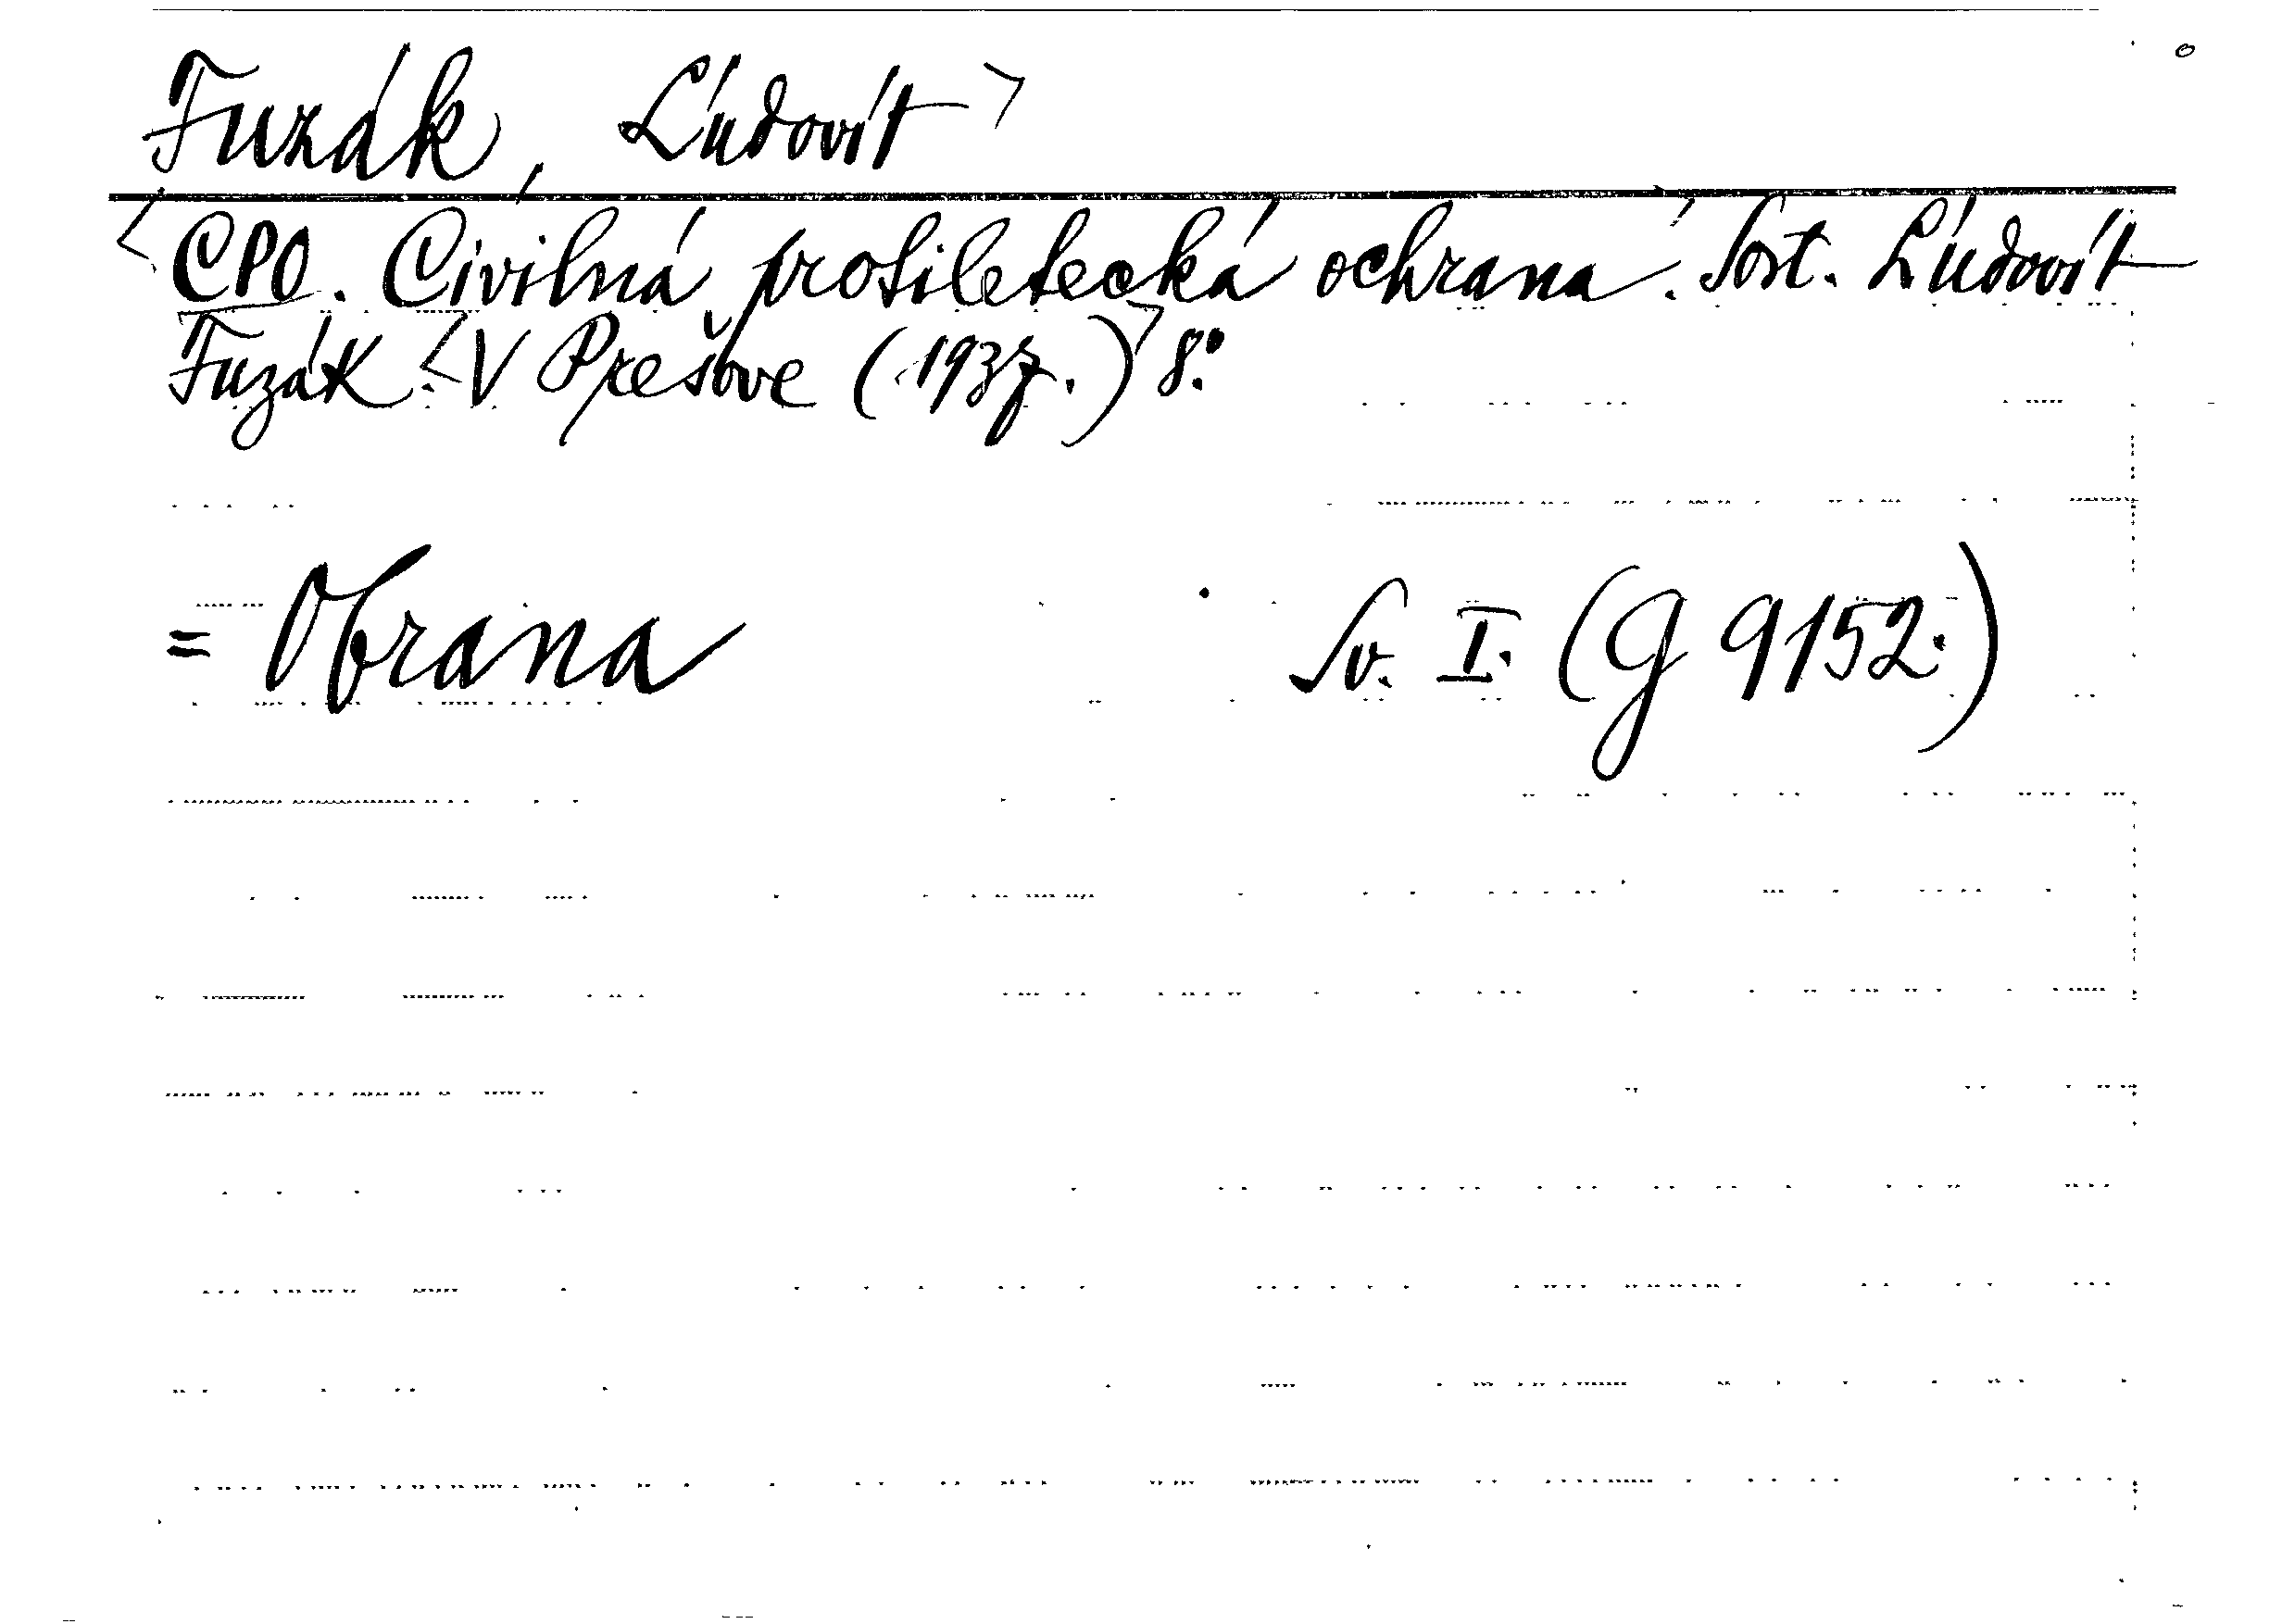 Fuzák, Ľúdovít
CPO. Civilná protiletecká ochrana. Sost. Ľúdovít
Fuzák. V Prešove (1937.) 8°.
= Obrana Sv. I. (G 9152.)